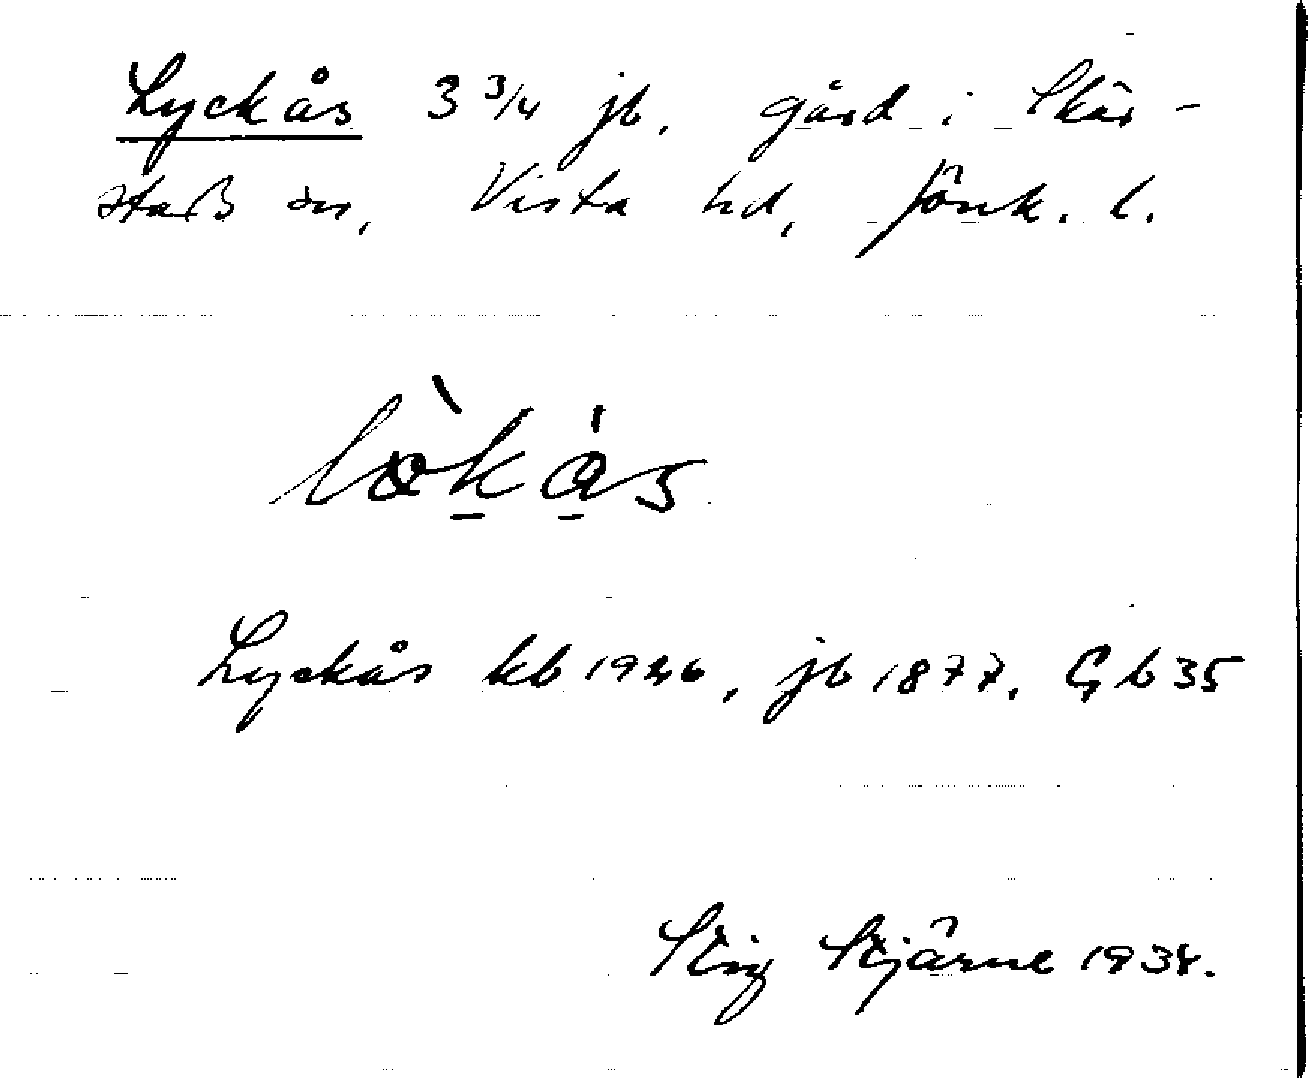 Lyckås 3 3/4 jb. gård i Skär-
stads sn, Vista hd, Jönk. l.
lökås
Lyckås kb 1946, jb 1877, Gb 35
Stig Stjärne 1934.